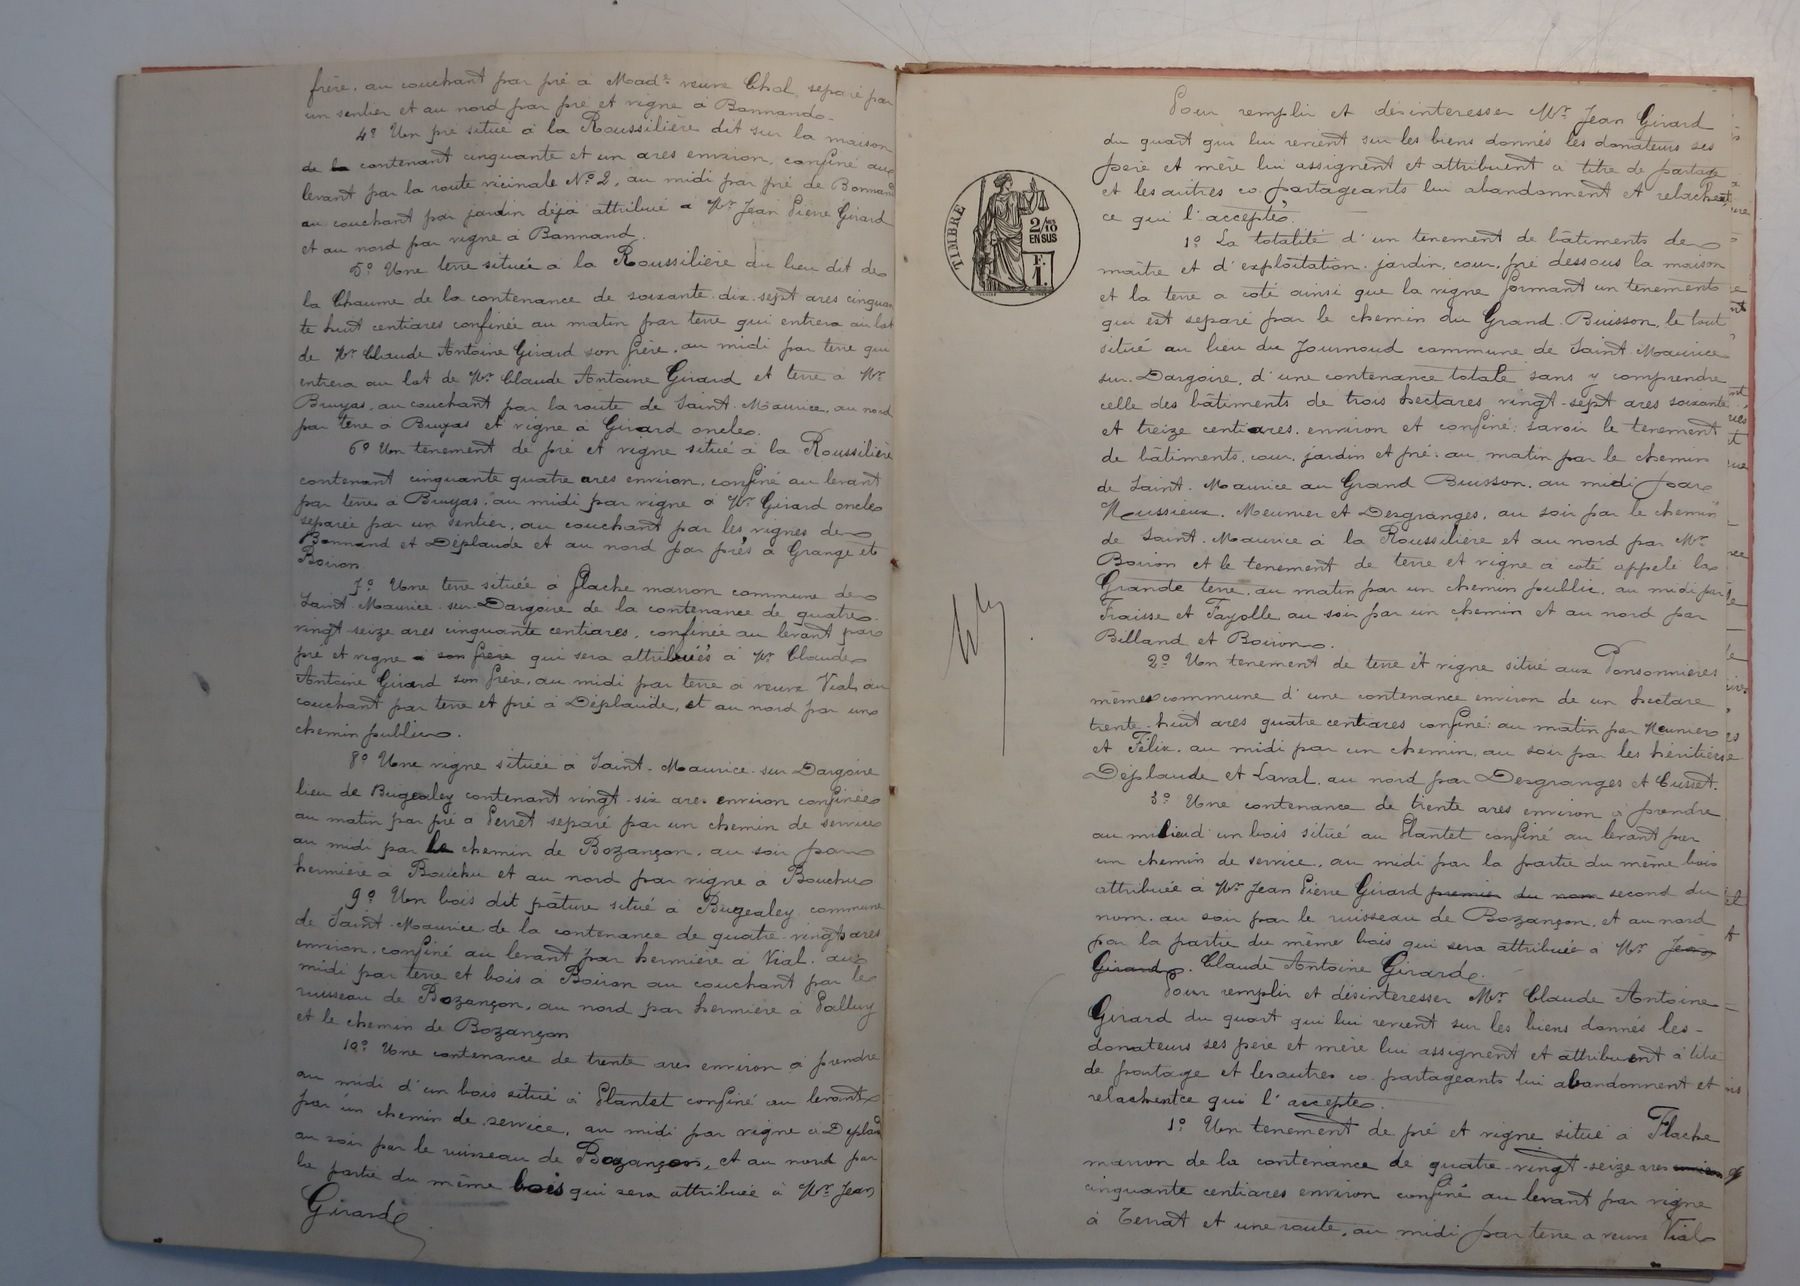 frère. au couchant par pré à Mad.e veuve Chol, separé par
un sentier et au nord par pré et vigne à Bonnando.
4° Un pré situé à la Roussilière dit sur la maison
de la contenant cinquante et un ares environ, confiné au
levant par la route vicinale N° 2, au midi par pré de Bonnand
au couchant par jardin déjà attribué à Mr Jean Pierre Girard
et au nord par vigne à Bonnand.
5° Une terre située à la Roussilière du lieu dit de
la Chaume de la contenance de soixante-dix-sept ares cinquan
te huit centiares confinée au matin par terre qui entrera au lot
de Mr Claude Antoine Girard son frère, au midi par terre qui
entrera au lot de Mr Claude Antoine Girard et terre à Mr
Bruyas, au couchant par la route de Saint-Maurice, au nord
par terre à Bruyas et vigne à Girard oncle.
6° Un tènement de pré et vigne situé à la Roussilière
contenant cinquante quatre ares environ, confiné au levant
par terre à Bruyas, au midi par vigne à Mr Girard oncle
separée par un sentier, au couchant par les vignes de
Bonnand et Déplaude et au nord par prés à Grange et
Boiron.
7° Une terre située à Flache marron commune de
Saint-Maurice-sur-Dargoire de la contenance de quatre
vingt-seize ares cinquante centiares, confinée au levant par
pré et vigne à son frère qui sera attribués à Mr Claude
Antoine Girard son frère, au midi par terre à veuve Vial, au
couchant par terre et pré à Déplaude, et au nord par un
chemin public.
8° Une vigne située à Saint-Maurice-sur-Dargoire
lieu de Bugealey contenant vingt-six ares environ confinée
au matin par pré à Perret separé par un chemin de service
au midi par le chemin de Bozançon, au soir par
hermière à Bouchu et au nord par vigne à Bouchu
9° Un bois dit pâture situé à Bugealey commune
de Saint-Maurice de la contenance de quatre-vingts ares
environ, confiné au levant par hermière à Vial, au
midi par terre et bois à Boiron au couchant par le
ruisseau de Bozançon, au nord par hermière à Palluy
et le chemin de Bozançon
10° Une contenance de trente ares environ à prendre
au midi d'un bois situé à Plantet confiné au levant
par un chemin de service, au midi par vigne à Deplau
au soir par le ruisseau de Bozançon, et au nord par
la partie du même bois qui sera attribuée à Mr Jean
Girard.
Pour remplir et désinteresser Mr Jean Girard
du quart qui lui revient sur les biens donnés les donateurs ses
père et mère lui assignent et attribuent à titre de partage
et les autres co-partageants lui abandonnent et relachent
ce qui l'accepte.
TIMBRE
2/10
EN SUS
F.
1.
1° La totalité d'un tenement de bâtiments de
maître et d'exploitation, jardin, cour, pré dessous la maison
et la terre a coté ainsi que la vigne formant un tenement
qui est separé par le chemin du Grand-Buisson, le tout
situé au lieu du Journoud commune de Saint-Maurice
sur-Dargoire, d'une contenance totale sans y comprendre
celle des bâtiments de trois hectares vingt-sept ares soixante
et treize centiares, environ et confiné: savoir le tenement
de bâtiments, cour, jardin et pré: au matin par le chemin
de Saint-Maurice au Grand Buisson, au midi par
Meussieux. Meunier et Desgranges, au soir par le chemin
de Saint-Maurice à la Roussilière et au nord par Mr
Boiron et le tenement de terre et vigne à coté appelé la
Grande terre, au matin par un chemin public, au midi par
Fraisse et Fayolle au soir par un chemin et au nord par
Billand et Boiron.
2° Un tenement de terre et vigne situé aux Ponsonnières
même commune d'une contenance environ de un hectare
trente-huit ares quatre centiares confiné: au matin par Meunier
et Félix, au midi par un chemin, au soir par les héritiers
Déplaude et Laval, au nord par Desgranges et Cusset.
3° Une contenance de trente ares environ à prendre
au milieu d'un bois situé au Plantet confiné au levant par
un chemin de service, au midi par la partie du même bois
attribuée à Mr Jean Pierre Girard premier du nom second du
nom, au soir par le ruisseau de Bozançon, et au nord
par la partie du même bois qui sera attribuée à Mr Jean
Girard. Claude Antoine Girard.
Pour remplir et désinteresser Mr Claude Antoine
Girard du quart qui lui revient sur les biens donnés les
donateurs ses père et mère lui assignent et attribuent à titre
de partage et les autres co-partageants lui abandonnent et
relachent ce qui l'accepte.
1° Un tenement de pré et vigne situé à Flache
marron de la contenance de quatre-vingt-seize ares environ
cinquante centiares environ confiné au levant par vigne
à Terrat et une route, au midi par terre à veuve Vial